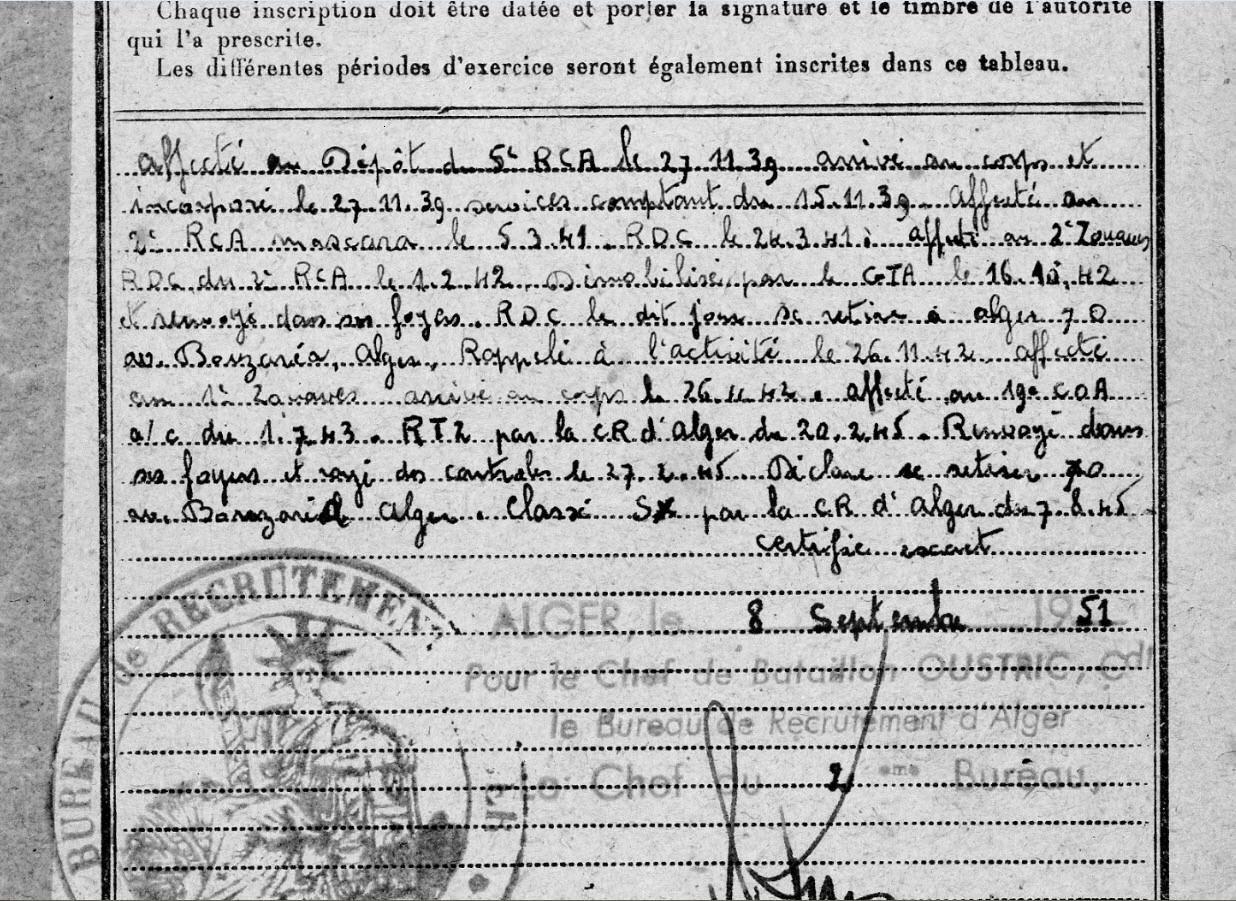 Chaque inscription doit être datée et porter la signature et le timbre de l'autorité
qui l'a prescrite.
Les différentes périodes d'exercice seront également inscrites dans ce tableau.
affecté au Dépôt du 5e RCA le 27.11.39 arrivé au corps et
incorporé le 27.11.39 services comptant du 15.11.39 Affecté au
2e RCA mascara le 5.3.41. RDC le 24.3.41. affecté au 2e Zouaves
RDC du 2e RCA le 1.2.42. Démobilisé par le CTA le 16.10.42
et renvoyé dans ses foyers. RDC le dit jour se retire à alger 70
av. Bouzaréa, Alger, Rappelé à l'activité le 26.11.42 affecté
au 1e Zouaves arrivé au corps le 26.11.42. affecté au 19e COA
a/c du 1.7.43. RT2 par la CR d'Alger du 20.2.45. Renvoyé dans
ses foyers et rayé des controles le 27.2.45 Déclare se retirer 70
av. Bouzaréa Alger. Classé SX par la CR d'Alger du 7.8.45
certifié exact
ALGER, le 8 Septembre 1951
Pour le Chef de Bataillon OUSTRIC, Cdt
le Bureau de Recrutement d'Alger
Le Chef du 2 eme Bureau,
BUREAU de RECRUTEMENT